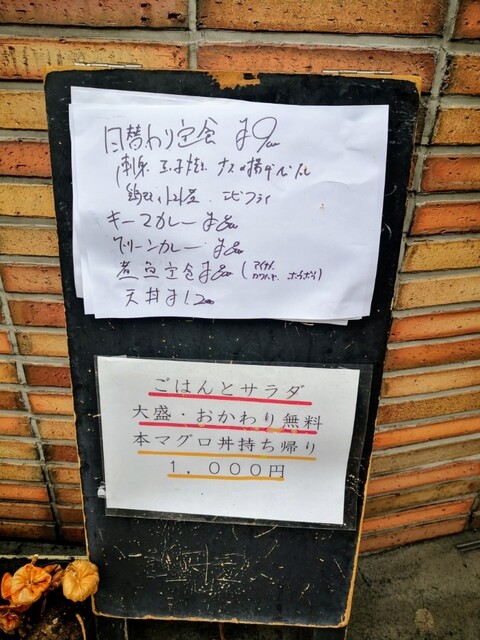 日替わり定食 ¥900
刺身 玉子焼 ナスの揚げ
エビフライ
キーマカレー ¥800
グリーンカレー ¥800
煮魚定食 ¥800 (アイナメ
天丼 ¥1200
ごはんとサラダ
大盛・おかわり無料
本マグロ丼持ち帰り
1,000円